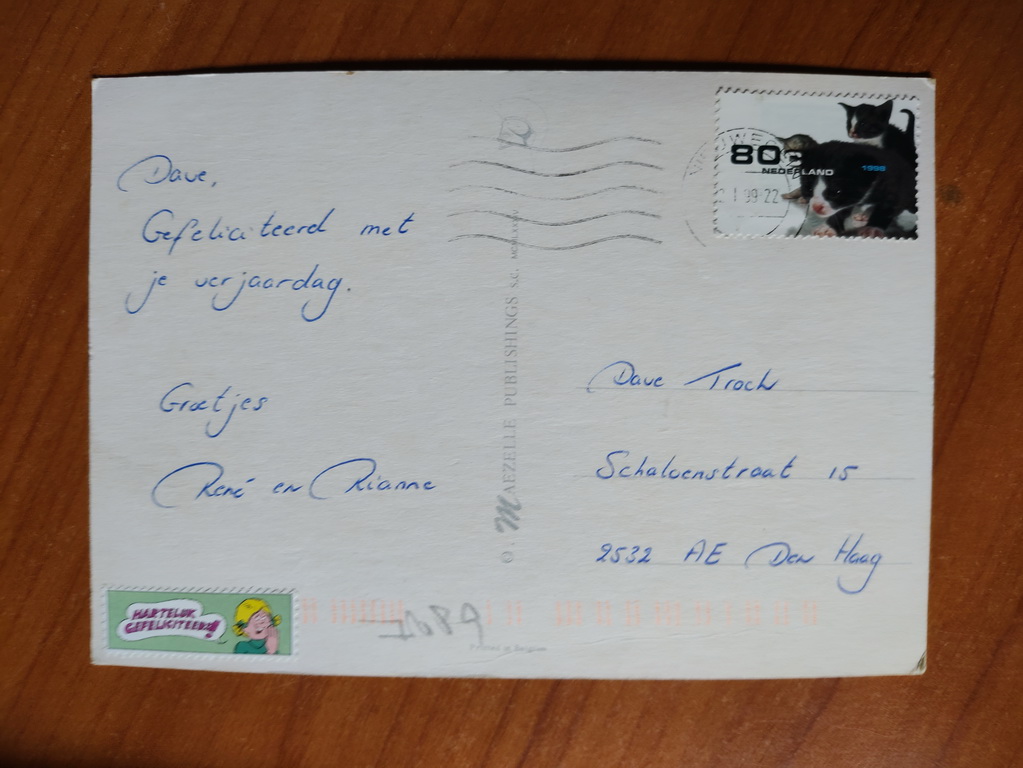 Dave,
Gefeliciteerd met
je verjaardag.
Groetjes
René en Rianne
HARTELIJK
GEFELICITEERD!!
©. MAEZELLE PUBLISHINGS s.c.
Printed in Belgium
80c
NEDERLAND
1998
1 99-22
Dave Troch
Schalvenstraat 15
2532 AE Den Haag